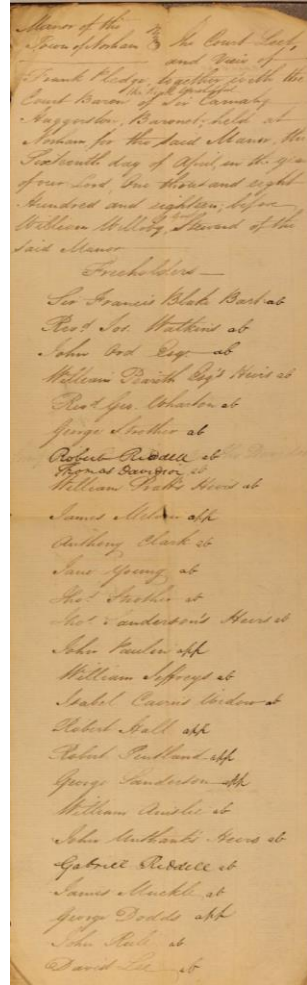 Manor of the
Town of Norham } The Court Leet,
and View of
Frank Pledge, together with the
Court Baron of Sir Carnaby
Haggerston, Baronet, held at
Norham for the said Manor, the
Sixteenth day of April, in the year
of our Lord, One thousand eight
Hundred and eighteen, before
William Willoby, Steward of the
said Manor
Freeholders
Sir Francis Blake Bart ab
Revd. Jos. Watkins ab
John Ord Esq. ab
William Esq's Heirs ab
Revd. Geo. Wharton ab
George Strother ab
Robert Riddell ab
Thomas Davidson ab
William Pratt's Heirs ab
James app
Anthony Clark ab
Jane Young ab
Thos. Strother ab
Thos. Sanderson's Heirs ab
John Paulin app
William Jeffreys ab
Isabel Cairns Widow ab
Robert Hall app
Robert Pentland app
George Sanderson app
William Ainslie ab
John Unthank's Heirs ab
Gabriel Riddell ab
James Muckle ab
George Dodds app
John ab
David Lee ab